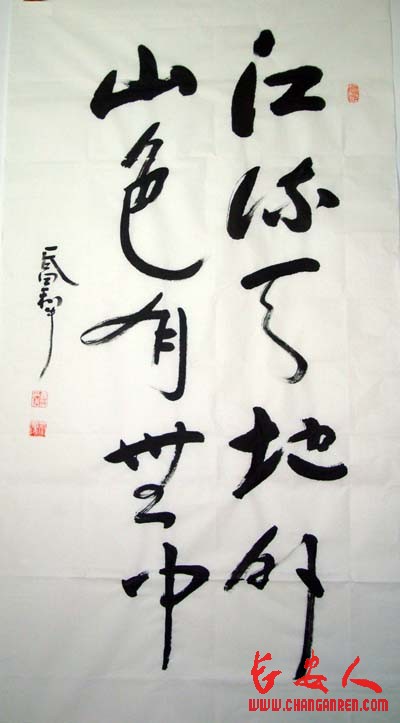 江流天地外
山色有無中
长安人
www.CHANGANREN.com